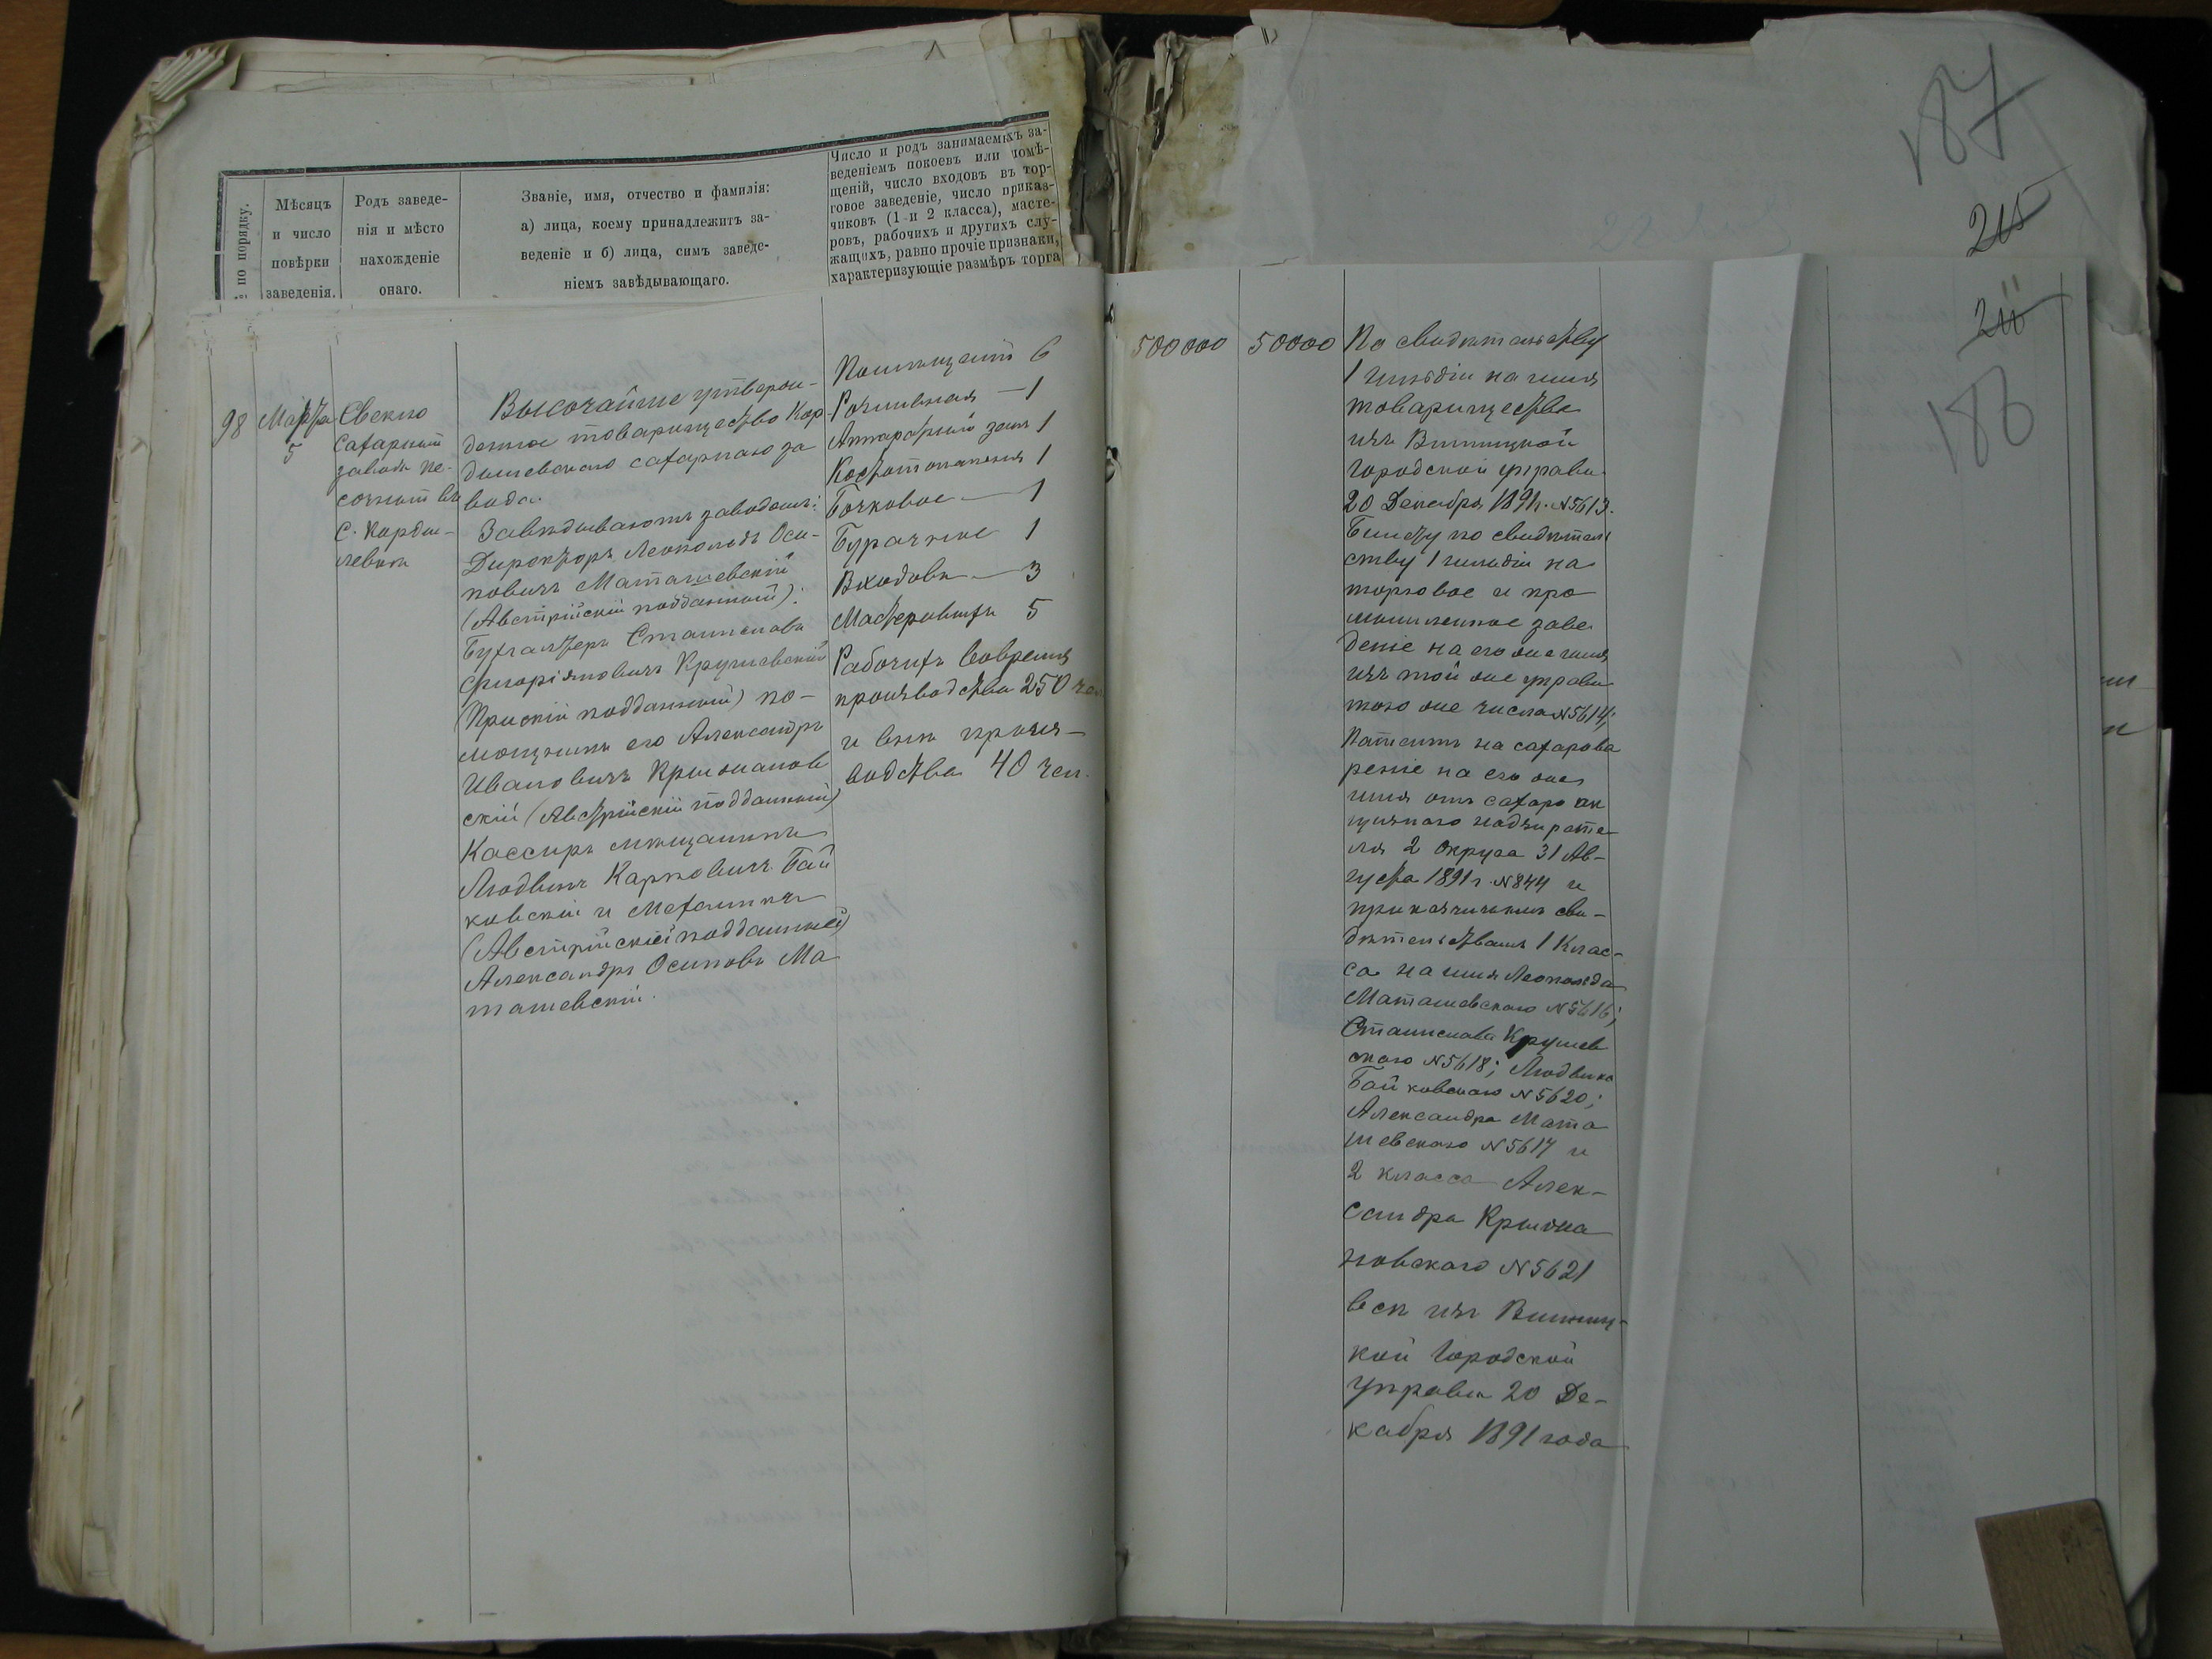 № по порядку.
Мѣсяцъ
и число
повѣрки
заведенія.
Родъ заведе-
нія и мѣсто
нахожденіе
онаго.
Званіе, имя, отчество и фамилія:
а) лица, коему принадлежитъ за-
веденіе и б) лица, симъ заведе-
ніемъ завѣдывающаго.
Число и родъ занимаемыхъ за-
веденіемъ покоевъ или помѣ-
щеній, число входовъ въ тор-
говое заведеніе, число приказ-
чиковъ (1 и 2 класса), масте-
ровъ, рабочихъ и другихъ слу-
жащихъ, равно прочіе признаки,
характеризующіе размѣръ торга
98
Марта
5
Свекло
сахарный
заводъ пе-
сочный въ
с. Корды-
левкѣ
Высочайше утверж-
денное товарищество Кор
дылевскаго сахарнаго за
вода.
Завѣдываютъ заводомъ:
Директоръ Леопольдъ Оси-
повичъ Маташевскій
(Австрійскій подданный);
Бухгалтеръ Станиславъ
Флоріяновичъ Крушевскій
(Прускій подданный) по-
мощникъ его Александръ
Ивановичъ Крыжанов
скій (Австрійскій подданный)
Кассиръ мѣщанинъ
Людвигъ Карловичъ Бай
ковскій и Механикъ
(Австрійскій подданный)
Александръ Осиповъ Ма
ташевскій.
Помѣщеній 6
1
Аппаратный залъ 1
Костопальня 1
Бочковое — 1
Бурачное 1
Входовъ — 3
Мастеровыхъ 5
Рабочихъ вовремя
производства 250 чел
и внѣ произ-
водства 40 чел.
500000
50000
По свидѣтельству
1 гильдіи на имя
товарищества
изъ Винницкой
городской управы
20 Декабря 1891г. №5613.
Билету по свидѣтель
ству 1 гильдіи на
торговое и про
мышленное заве
деніе на его же имя
изъ той же управы
того же числа №5614;
Патентъ на сахарова
реніе на его же
имя отъ сахаро ак
цизнаго надзирате
ля 2 округа 31 Ав-
густа 1891 г. №844 и
приказчичьимъ сви-
дѣтельствамъ 1 Клас-
са на имя Леопольда
Маташевскаго №5616;
Станислава Крушев
скаго №5618; Людвика
Байковскаго №5620;
Александра Мата
шевскаго №5617 и
2 класса Алек-
сандра Крыжа
новскаго №5621
всѣ изъ Винниц-
кой Городской
Управы 20 Де-
кабря 1891 года
187
215
211
186